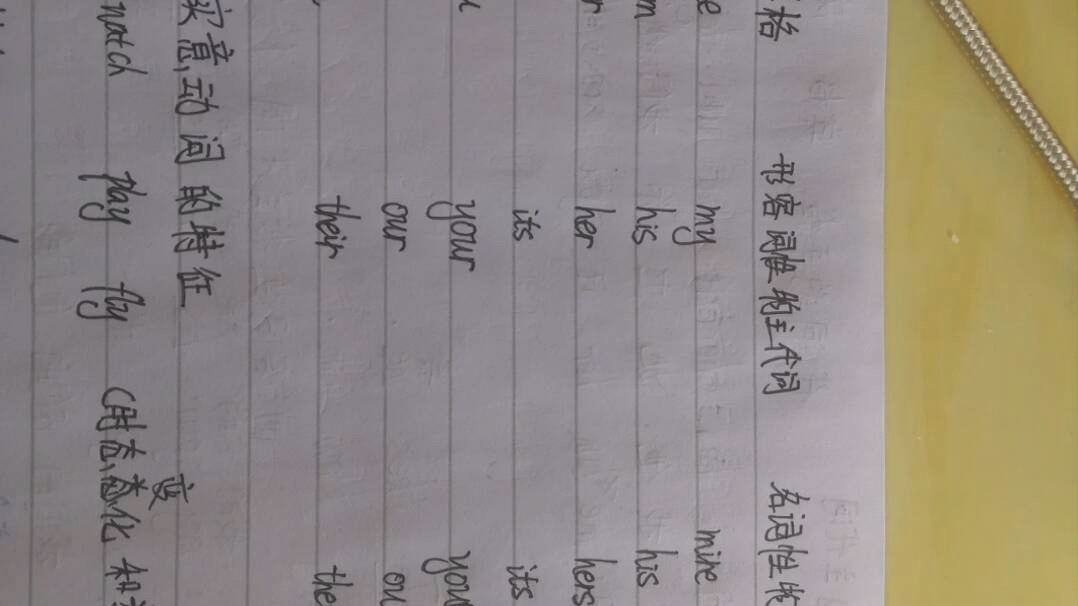 格 形容词性物主代词 名词性物
e my mine
m his his
r her hers
its its
u your you
our ou
their the
实意动词的特征
watch play fly (时态变化 和